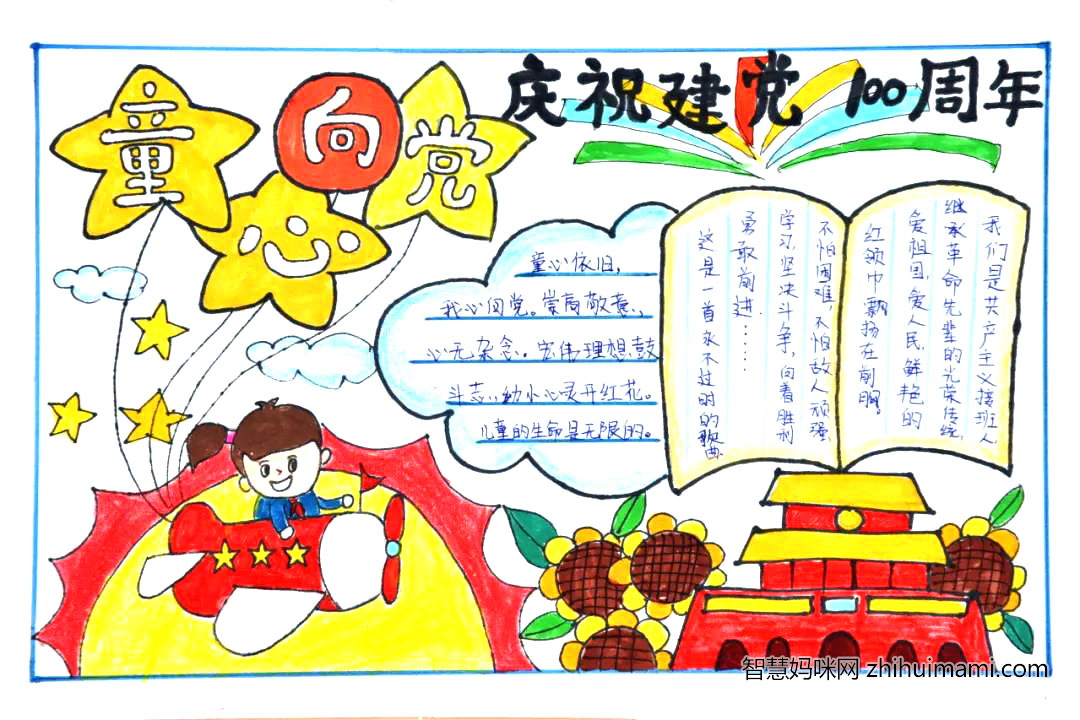 童心向党
庆祝建党100周年
童心依旧,
我心向党。崇高敬意,
心无杂念。宏伟理想鼓
斗志,幼小心灵开红花。
儿童的生命是无限的。
我们是共产主义接班人
继承革命先辈的光荣传统
爱祖国,爱人民,鲜艳的
红领巾飘扬在前胸
不怕困难,不怕敌人顽强
学习,坚决斗争,向着胜利
勇敢前进……
这是一首永不过时的歌曲
智慧妈咪网 zhihuimami.com